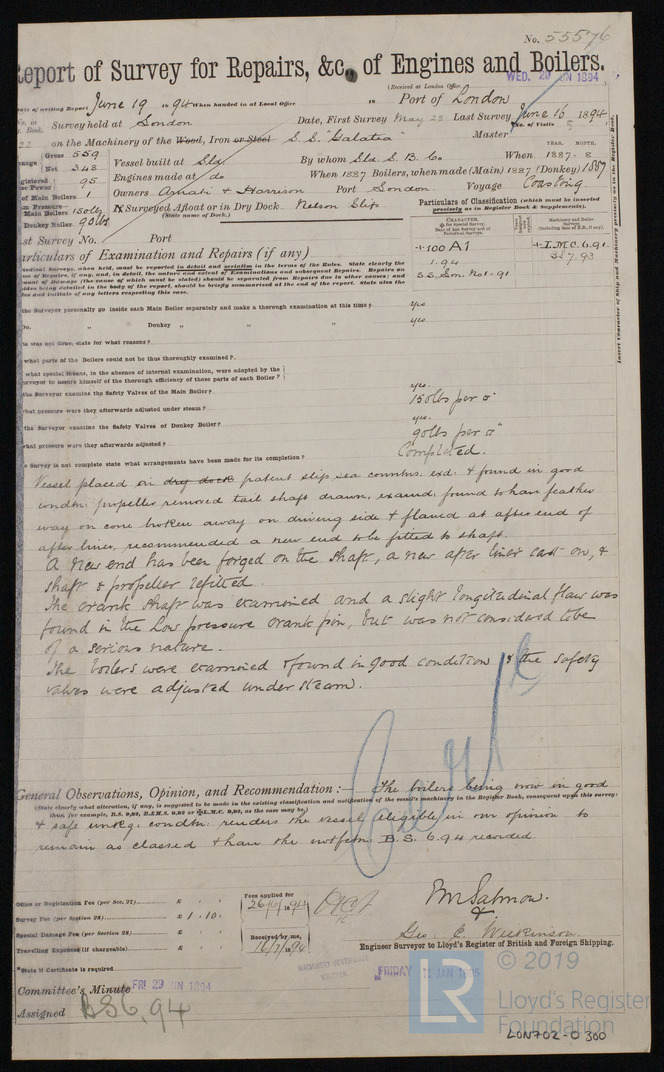 No. 55576
Report of Survey for Repairs, &c., of Engines and Boilers.
(Received at London Office WED. 20 JUN 1894
Date of writing Report June 19 1894 When handed in at Local Office 18 Port of London
No. in Survey held at London Date, First Survey May 23 Last Survey June 16 1894
Book. No. of Visits 5
on the Machinery of the Wood, Iron or Steel S.S. "Galatea" Master
YEAR. MONTH.
Gross 559 Vessel built at Sld. By whom Sld. S. B. Co When 1887 - 8
Net 343
Engines made at do When 1887 Boilers, when made (Main) 1887 (Donkey) 1887
Registered Horse Power 95
No. of Main Boilers 1 Owners & Harrison Port London Voyage Coasting
Steam Pressure
Main Boilers 150lbs If Surveyed Afloat or in Dry Dock Nelson Slip
(State name of Dock.)
Donkey Boiler 90lbs
Particulars of Classification (which must be inserted
precisely as in Register Book & Supplements).
Last Survey No. Port
CHARACTER.
+100A1 +L.M.C. 6.91
1.94 3.27.93
S.S. Lon. No1-91
Insert Character of Ship and Machinery precisely as in the Register Book.
Particulars of Examination and Repairs (if any)
the Surveyor personally go inside each Main Boiler separately and make a thorough examination at this time? yes
Do. „ Donkey „ „ „ yes
this was not done, state for what reasons?
what parts of the Boilers could not be thus thoroughly examined?
what special means, in the absence of internal examination, were adopted by the
Surveyor to assure himself of the thorough efficiency of those parts of each Boiler?
the Surveyor examine the Safety Valves of the Main Boiler? yes.
what pressure were they afterwards adjusted under steam? 150lbs per □"
the Surveyor examine the Safety Valves of Donkey Boiler? yes.
what pressure were they afterwards adjusted? 90lbs per □"
the Survey is not complete state what arrangements have been made for its completion? Completed.
Vessel placed on dry dock patent slip sea connctns. exd: & found in good
condtn: propeller removed tail shaft drawn, examd: found to have feather
way on cone broken away on driving side & flawed at after end of
after liner, recommended a new end to be fitted to shaft.
A New end has been forged on the Shaft, a new after liner cast on, &
shaft & propeller refitted.
The crank shaft was examined and a slight longitudinal flaw was
found in the Low pressure crank pin, but was not considered to be
of a serious nature.
The boilers were examined & found in good condition & the safety
valves were adjusted under steam.
General Observations, Opinion, and Recommendation :— The boilers being now in good
(State clearly what alteration, if any, is suggested to be made in the existing classification and notification of the vessel's machinery in the Register Book, consequent upon this survey:
thus, for example, B.S. 9,92, B.&M.S. 9,92 or ✠L.M.C. 9,92, as the case may be.)
& safe workg. condtn: renders the vessel eligible in our opinion to
remain as classed & have the notfctn: B.S. 6.94 recorded.
Office or Registration Fee (per Sec. 27) £
Survey Fee (per Section 28) £ 1 . 10.
Special Damage Fee (per Section 28) £
Travelling Expenses (if chargeable) £
Fees applied for
26/6/1894
Received by me,
16/7/1894
*State if Certificate is required
W. Salmon.
&
Geo: C. Wilkinson.
Engineer Surveyor to Lloyd's Register of British and Foreign Shipping.
FRIDAY 11 JAN 1895
Committee's Minute FRI 29 JUN 1894
Assigned BS 6,94
© 2019
LR
Lloyd's Register
Foundation
LON702-0300